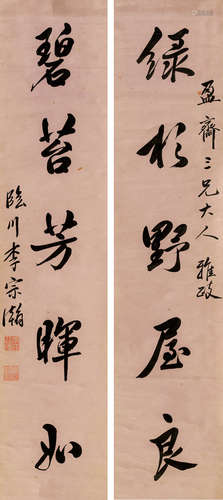 盈齋三兄大人雅政
綠杉野屋良
碧苔芳暉如
臨川李宗瀚